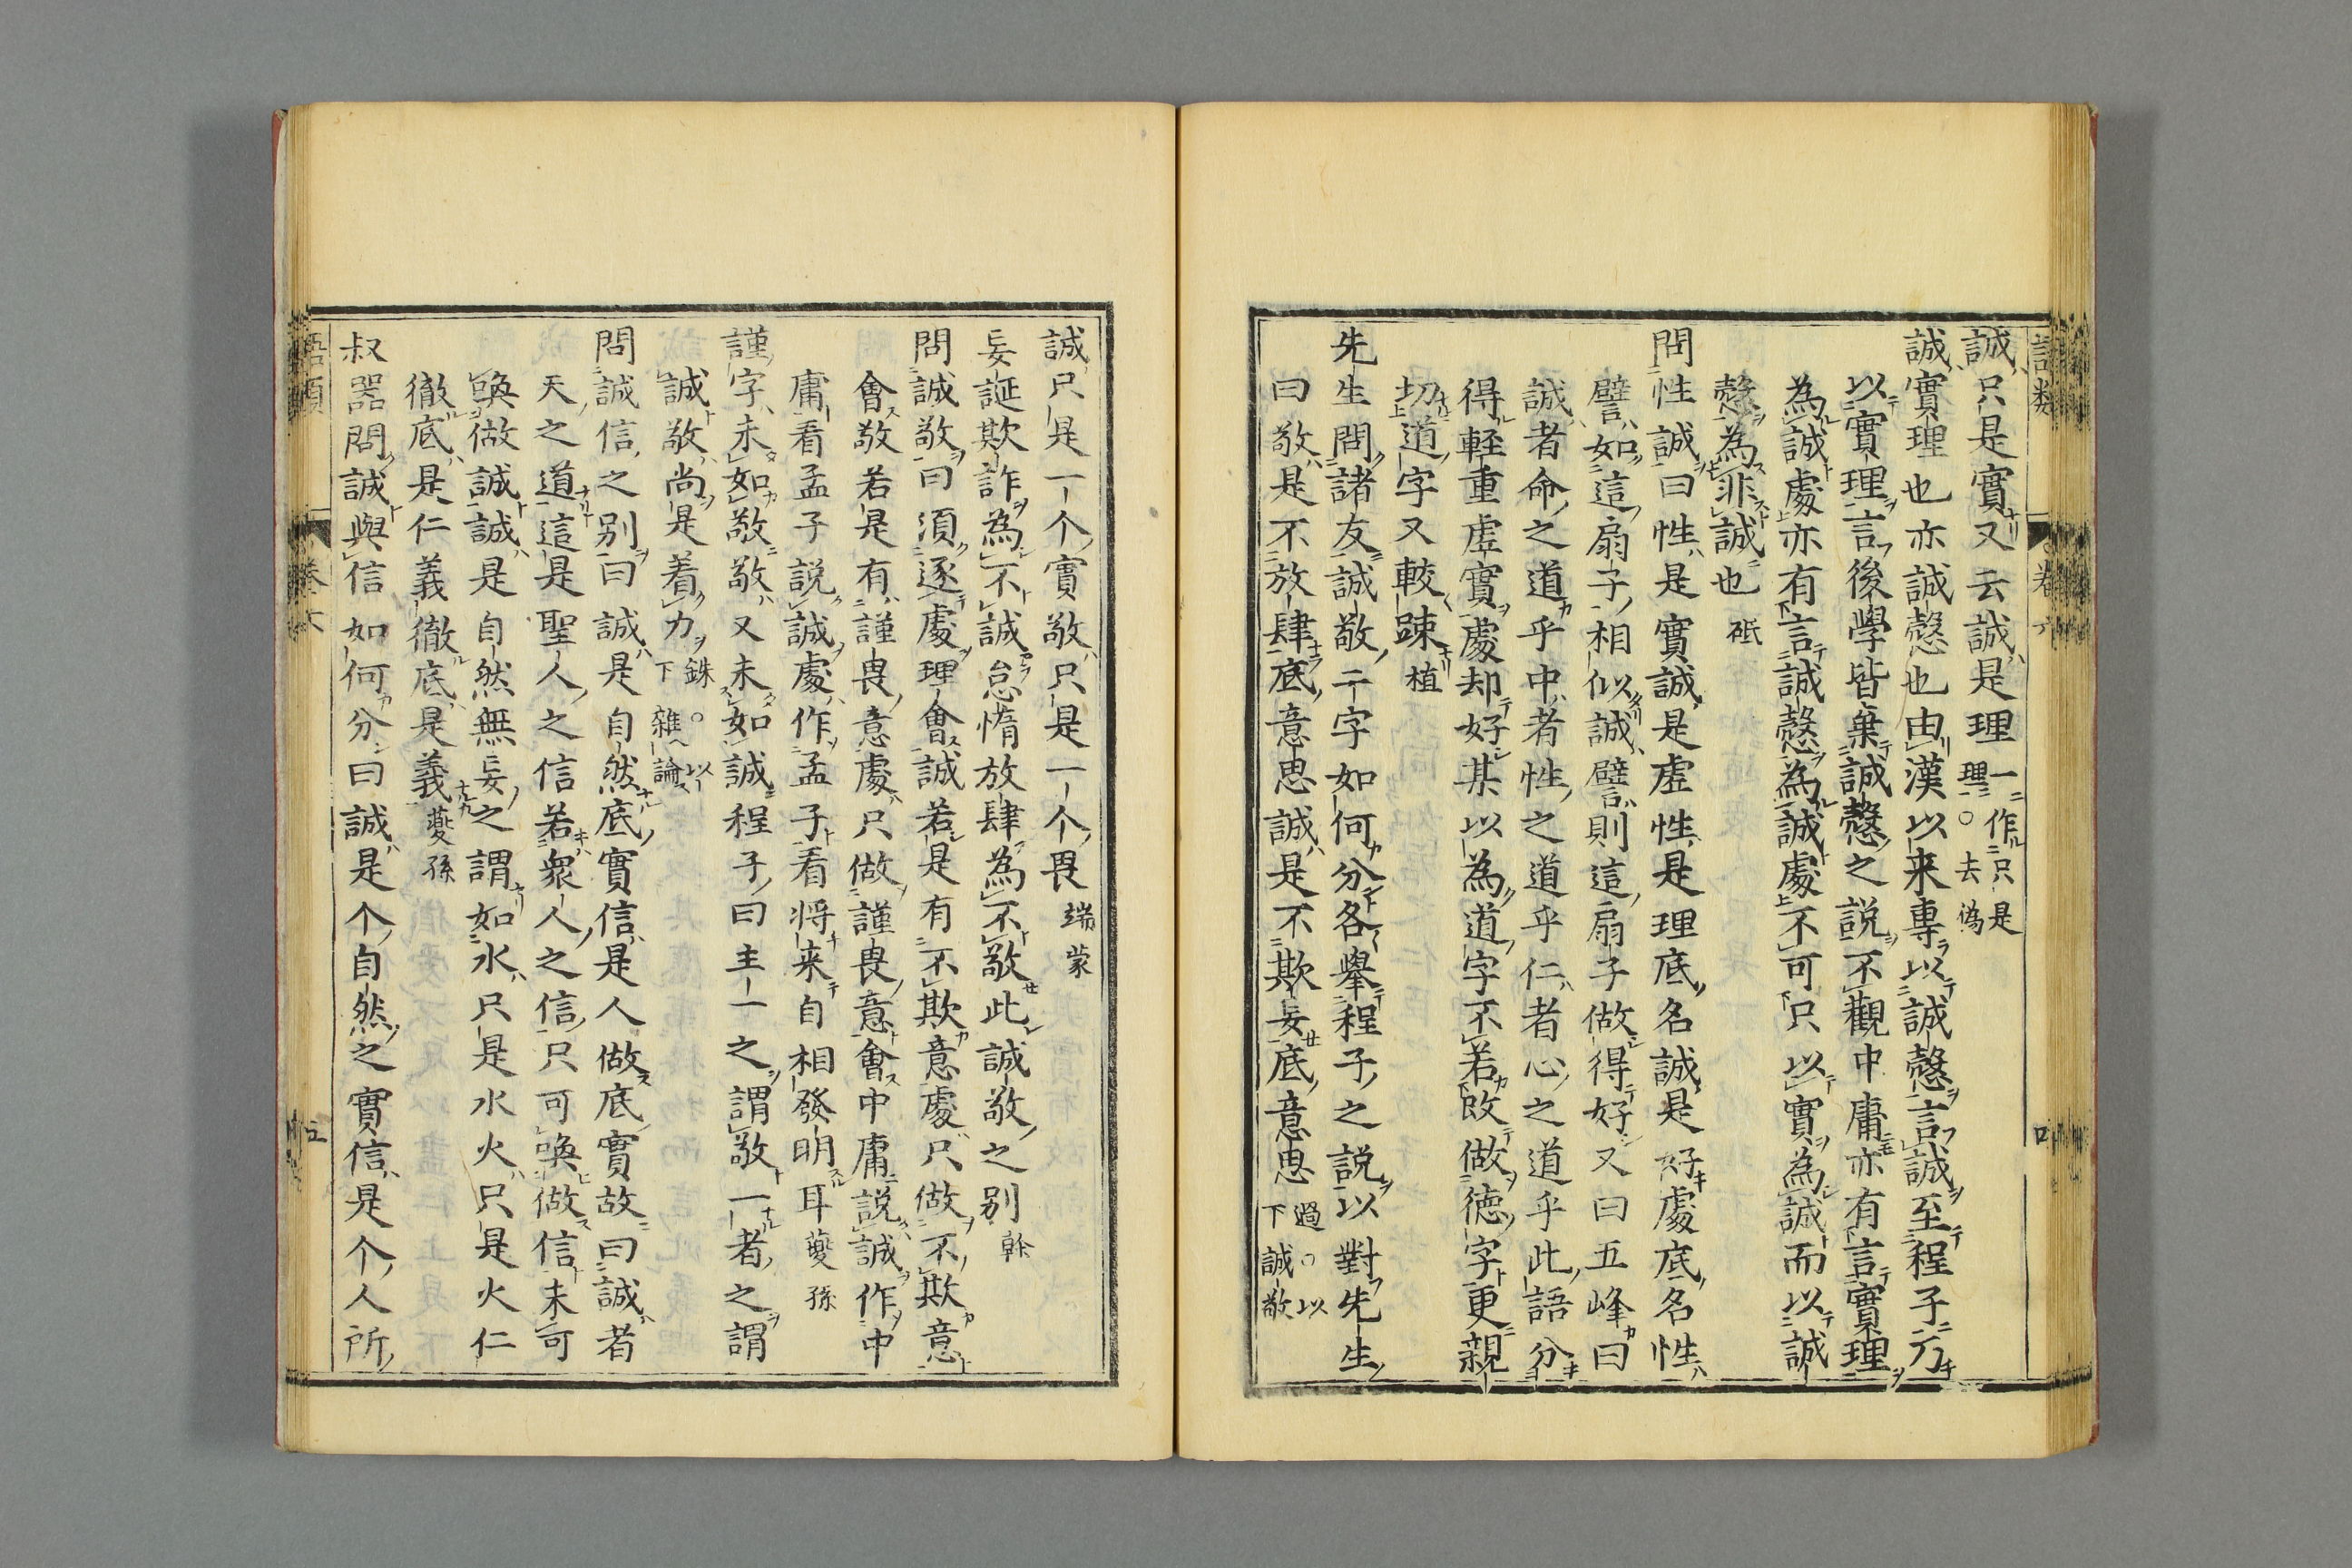 誠只是實又云誠是理一作只是理○去偽
誠實理也亦誠慤也由漢以来專以誠慤言誠至程子乃
以實理言後學皆棄誠慤之説不觀中庸亦有言實理
為誠處亦有言誠慤為誠處不可只以實為誠而以誠
慤為非誠也砥
問性誠曰性是實誠是虚性是理底名誠是好處底名性
譬如這扇子相似誠譬則這扇子做得好又曰五峰曰
誠者命之道乎中者性之道乎仁者心之道乎此語分
得軽重虚實處却好某以為道字不若改做徳字更親
切道字又較踈植
先生問諸友誠敬二字如何分各舉程子之説以對先生
曰敬是不放肆底意思誠是不欺妄底意思過○以下誠敬
誠只是一个實敬只是一个畏端蒙
妄誕欺詐為不誠怠惰放肆為不敬此誠敬之別榦
問誠敬曰須逐處理會誠若是有不欺意處只做不欺意
會敬若是有謹畏意處只做謹畏意會中庸説誠作中
庸看孟子説誠處作孟子看将来自相發明耳夔孫
謹字未如敬敬又未如誠程子曰主一之謂敬一者之謂
誠敬尚是着力銖○以下雑論
問誠信之別曰誠是自然底實信是人做底實故曰誠者
天之道這是聖人之信若衆人之信只可喚做信未可
喚做誠誠是自然無妄之謂如水只是水火只是火仁
徹底是仁義徹底是義夔孫
叔器問誠與信如何分曰誠是个自然之實信是个人所
語類
卷六
五